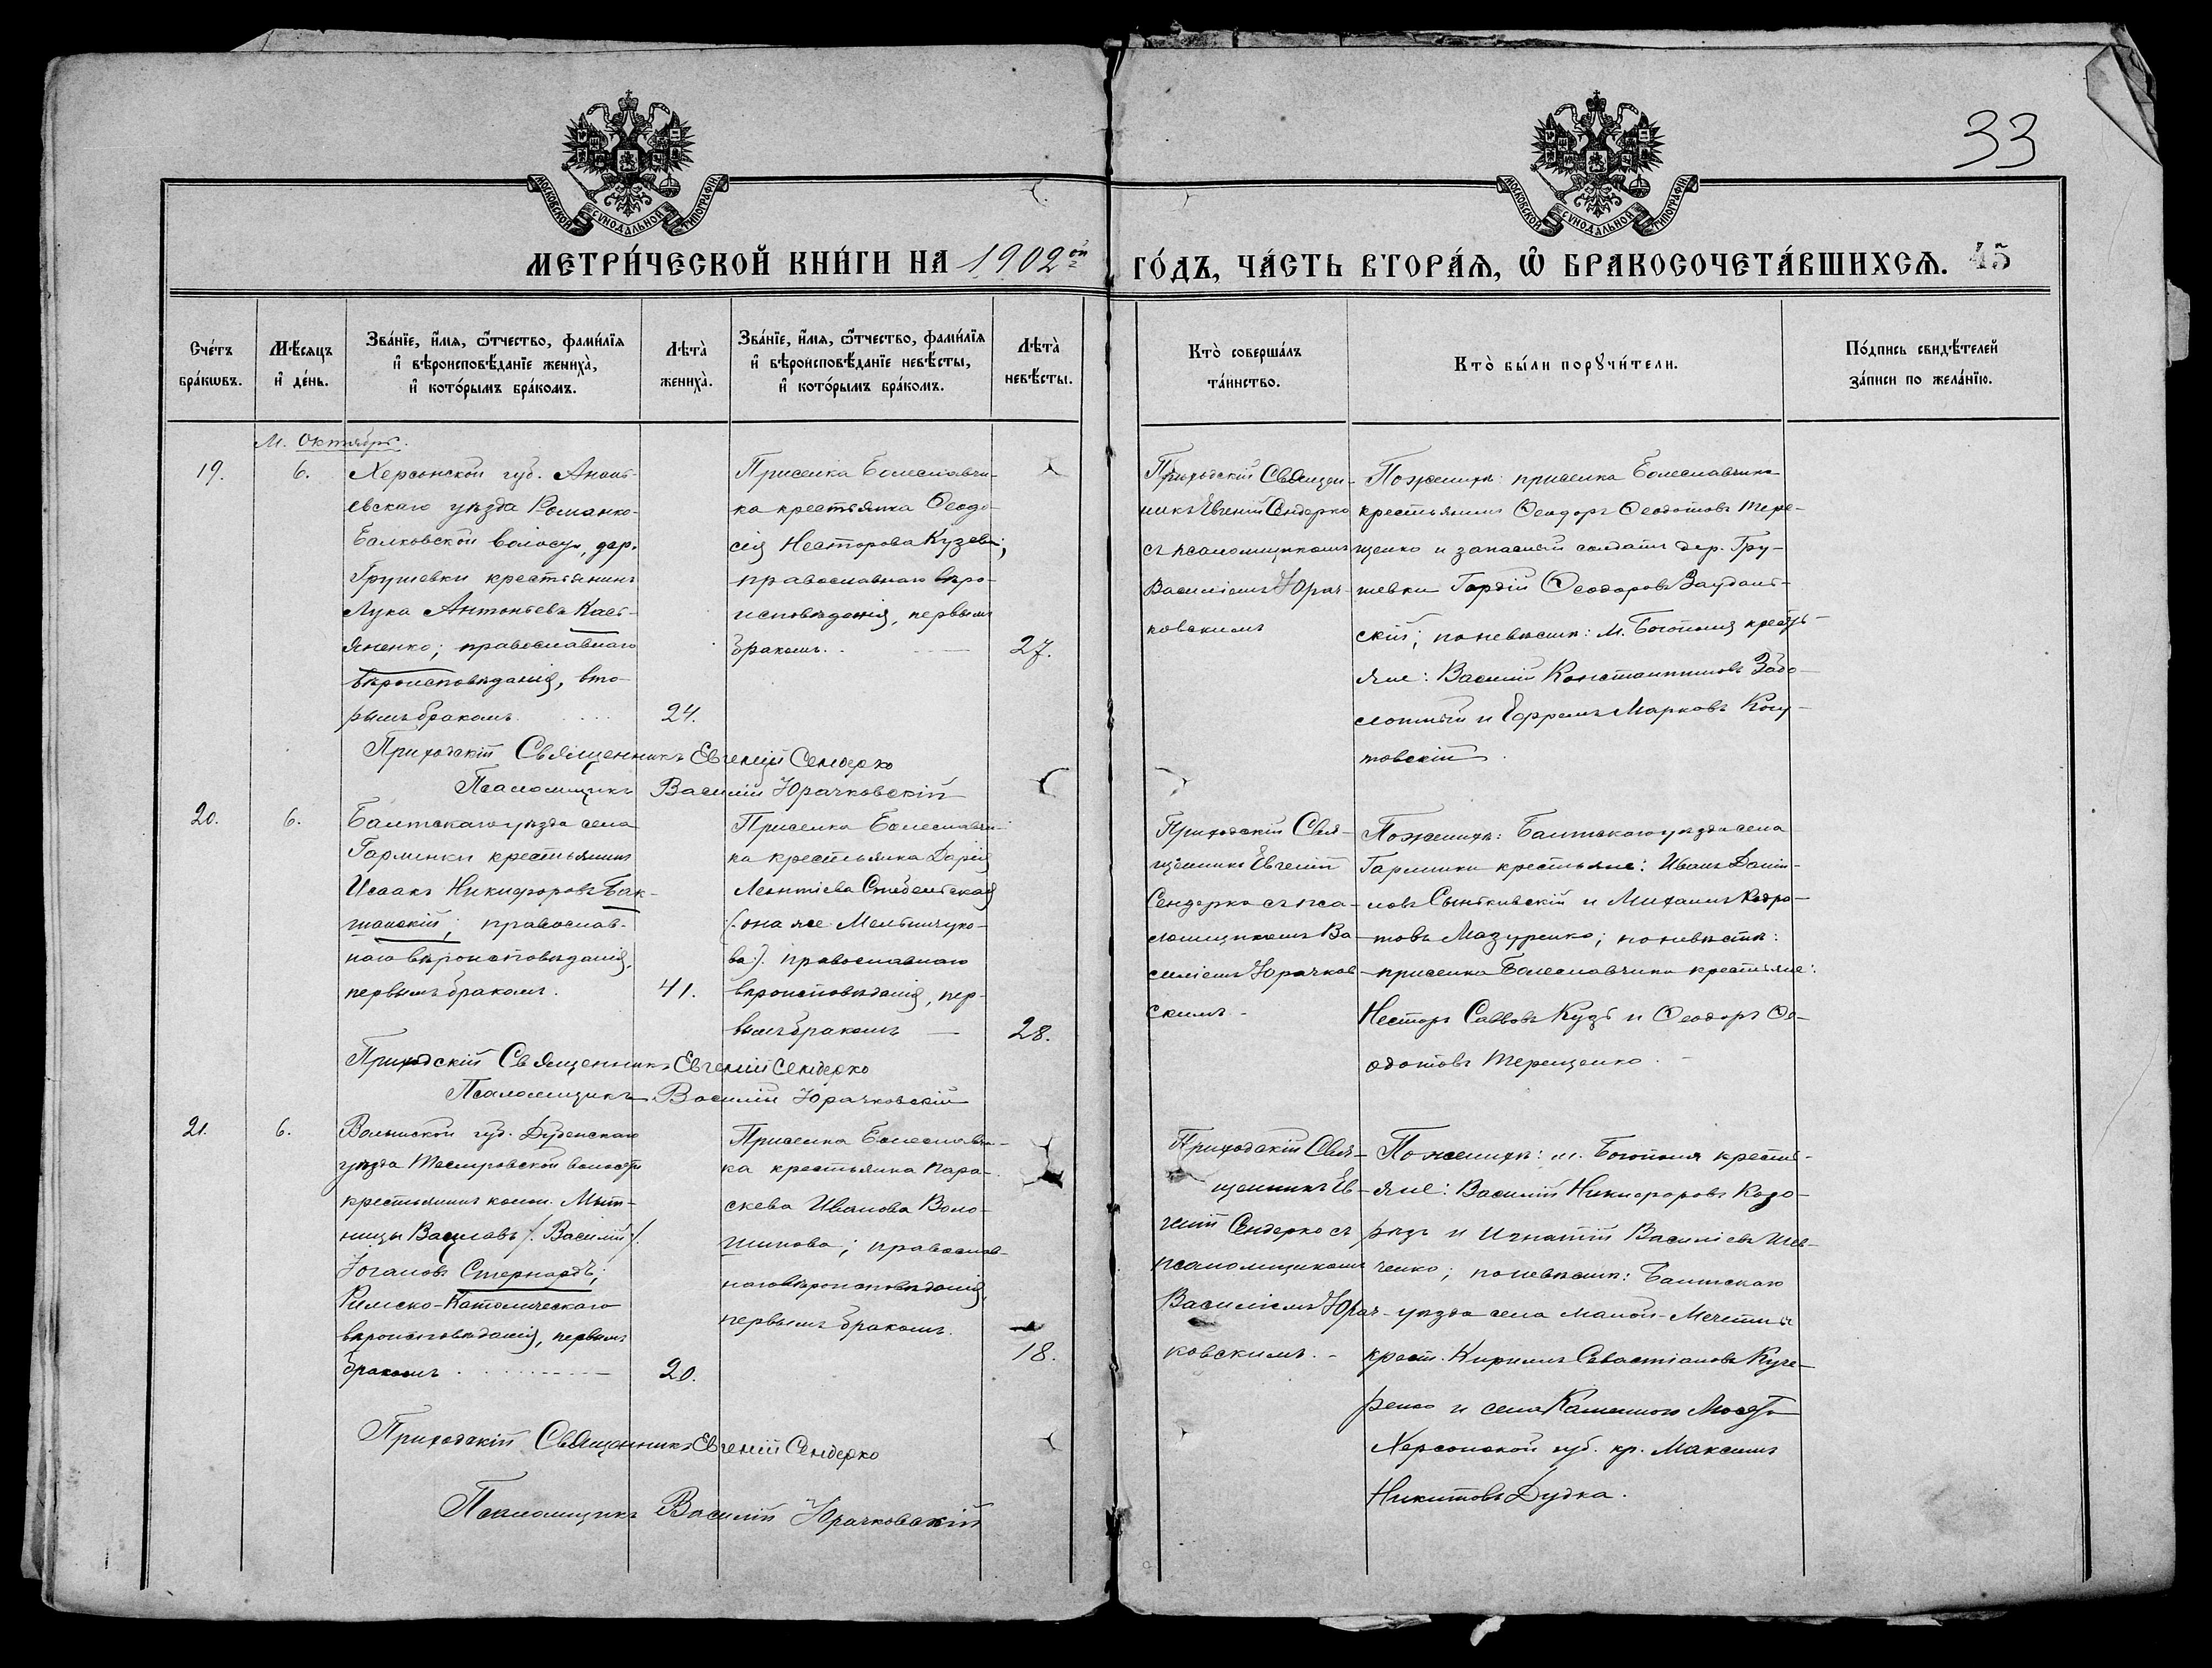 33
МОСКОВСКОЙ СѴНОДАЛЬНОЙ ТИПОГРАФІИ
МОСКОВСКОЙ СѴНОДАЛЬНОЙ ТИПОГРАФІИ
МЕТРИ́ЧЕСКОЙ КНИ́ГИ НА 1902ой ГО́ДЪ, ЧА́СТЬ ВТОРА́Ѧ, Ѽ БРАКОСОЧЕТА́ВШИХСѦ. 45
Сче́тъ
бра́кѡвъ.
Мѣ́сяцъ
и҆ де́нь.
Зва́нїе, и҆́мѧ, ѻ҆́тчество, фами́лїѧ
и҆ вѣроисповѣ́данїе жениха̀,
и҆ кото́рымъ бра́комъ.
Лѣта̀
жениха̀.
Зва́нїе, и҆́мѧ, ѻ҆́тчество, фами́лїѧ
и҆ вѣроисповѣ́данїе невѣ́сты,
и҆ кото́рымъ бра́комъ.
Лѣта̀
невѣ́сты.
Кто̀ соверша́лъ
та́инство.
Кто̀ бы́ли порꙋчи́тели.
По́дпись свидѣ́телей
за́писи по жела́нїю.
М. Октябрь.
19.
6.
Херсонской губ. Анань-
евскаго уѣзда Романко-
Балковской волости, дер.
Грушевки крестьянинъ
Лука Антоньевъ Кась-
яненко; православнаго
вѣроисповѣданія, вто-
рымъ бракомъ.
24.
Приселка Болеславчи-
ка крестьянка Ѳеодо-
сія Несторова Кузева;
православнаго вѣро-
исповѣданія, первымъ
бракомъ.
27.
Приходскій Священ-
никъ Евгеній Сендерко
съ псаломщикомъ
Василіемъ Юрач-
ковскимъ
По женихѣ: приселка Болеславчика
крестьянинъ Ѳеодоръ Ѳеодотовъ Тере-
щенко и запасный солдатъ дер. Гру-
шевки Гордій Ѳеодоровъ
скій; по невѣстѣ: м. Богополя кресть-
яне: Василій Константиновъ Забо-
лотный и Ефремъ Марковъ Когу-
товскій.
Приходскій Священникъ Евгеній Сендерко
Псаломщикъ Василій Юрачковскій
20.
6.
Балтскаго уѣзда села
Гарминки крестьянинъ
Исаакъ Никифоровъ Бак-
шанскій; православ-
наго вѣроисповѣданія,
первымъ бракомъ.
41.
Приселка Болеславчи-
ка крестьянка Дарія
Леонтіева
(она же Мельничуко-
ва). православнаго
вѣроисповѣданія, пер-
вымъ бракомъ
28.
Приходскій Свя-
щенникъ Евгеній
Сендерко съ пса-
ломщикомъ Ва-
силіемъ Юрачков-
скимъ.
По женихѣ: Балтскаго уѣзда села
Гарминки крестьяне: Иванъ Дани-
ловъ и Михаилъ Кодра-
товъ Мазуренко; по невѣстѣ:
приселка Болеславчика крестьяне:
Несторъ Саввовъ Кузь и Ѳеодоръ Ѳе-
одотовъ Терещенко.
Приходскій Священникъ Евгеній Сендерко
Псаломщикъ Василій Юрачковскій
21.
6.
Волынской губ. Дубенскаго
уѣзда волости
крестьянинъ колон. Мыт-
ницы Вацлавъ (Василій)
Іогановъ Стернардъ;
Римско-Католическаго
вѣроисповѣданія, первымъ
бракомъ
20.
Приселка Болеславчи-
ка крестьянка Пара-
скева Иванова Воло-
шинова; православ-
наго вѣроисповѣданія,
первымъ бракомъ.
18.
Приходскій Свя-
щенникъ Ев-
геній Сендерко съ
псаломщикомъ
Василіемъ Юрач-
ковскимъ.
По женихѣ: м. Богополя кресть-
яне: Василій Никифоровъ
и Игнатій Василіевъ Шев-
ченко; по невѣстѣ: Балтскаго
уѣзда села Малой-Мечетни
крест. Кириллъ Севастіановъ Куче-
ренко и села Каменного Моста
Херсонской губ. кр. Максимъ
Никитовъ Дудка.
Приходскій Священникъ Евгеній Сендерко
Псаломщикъ Василій Юрачковскій